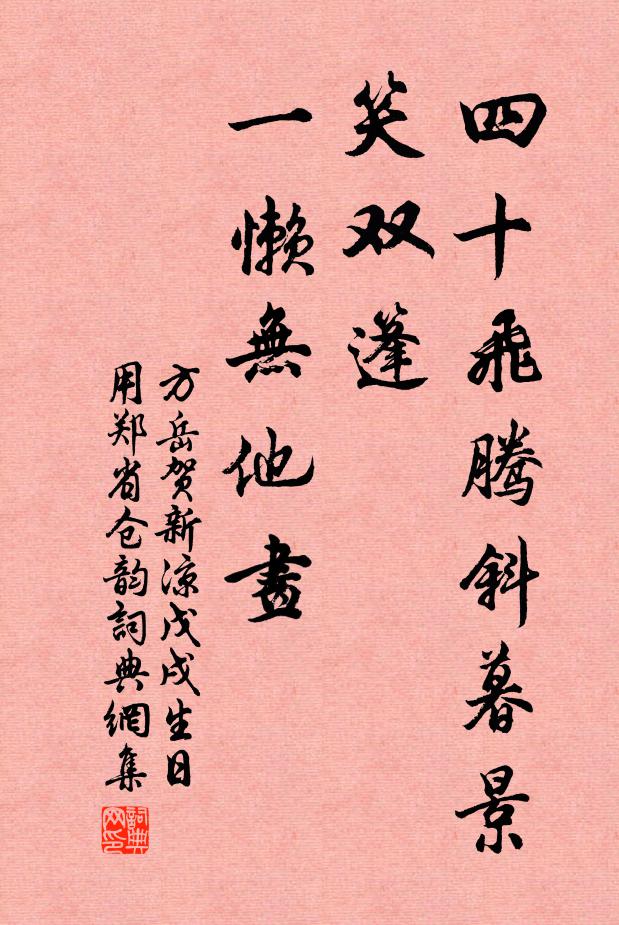 四十飛騰斜暮景
笑双蓬
一懶無他畫
方岳賀新凉戊戌生日
用郑省仓韵詞典網集
詞典
网印